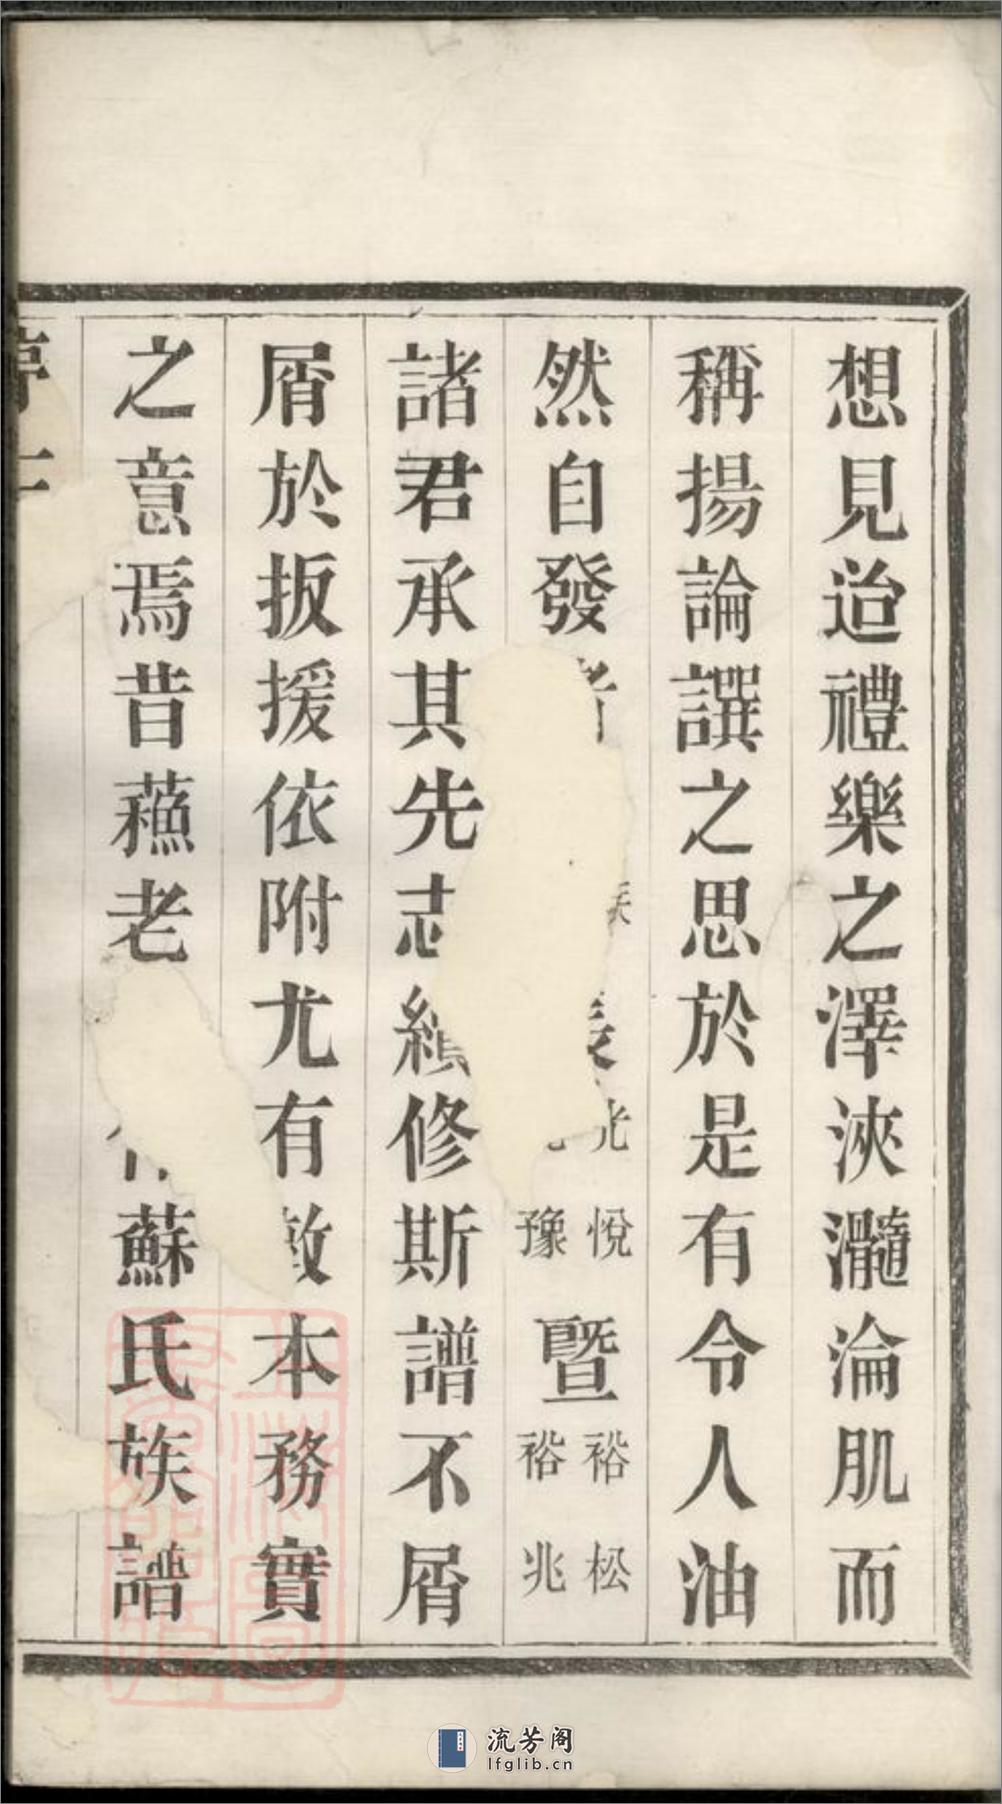 想見迨禮樂之澤浹瀡淪肌而
稱揚論譔之思於是有令人油
然自發者族長光悅豫暨裕裕松兆
諸君承其先志纘修斯譜不屑
屑於扳援依附尤有敦本務實
之意焉昔蘓老作蘇氏族譜
流芳阁
lfglib.cn